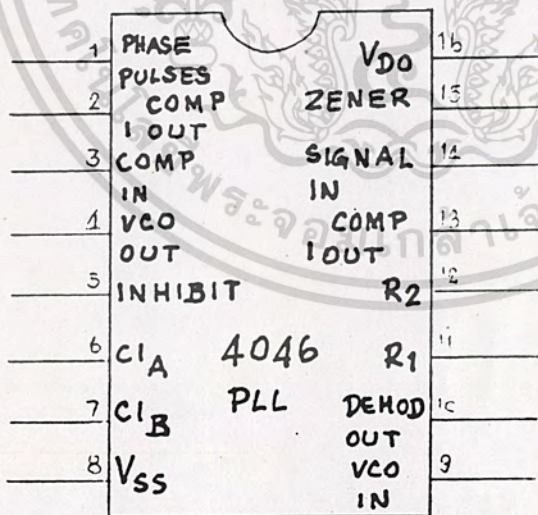 1 PHASE
PULSES
2 COMP
1 OUT
3 COMP
IN
4 VCO
OUT
5 INHIBIT
6 C1A
7 C1B
8 VSS
4046
PLL
VDD 16
ZENER 15
SIGNAL 14
IN
COMP 13
1 OUT
R2 12
R1 11
DEMOD 10
OUT
VCO 9
IN
พระจอมเกล้าเจ้า